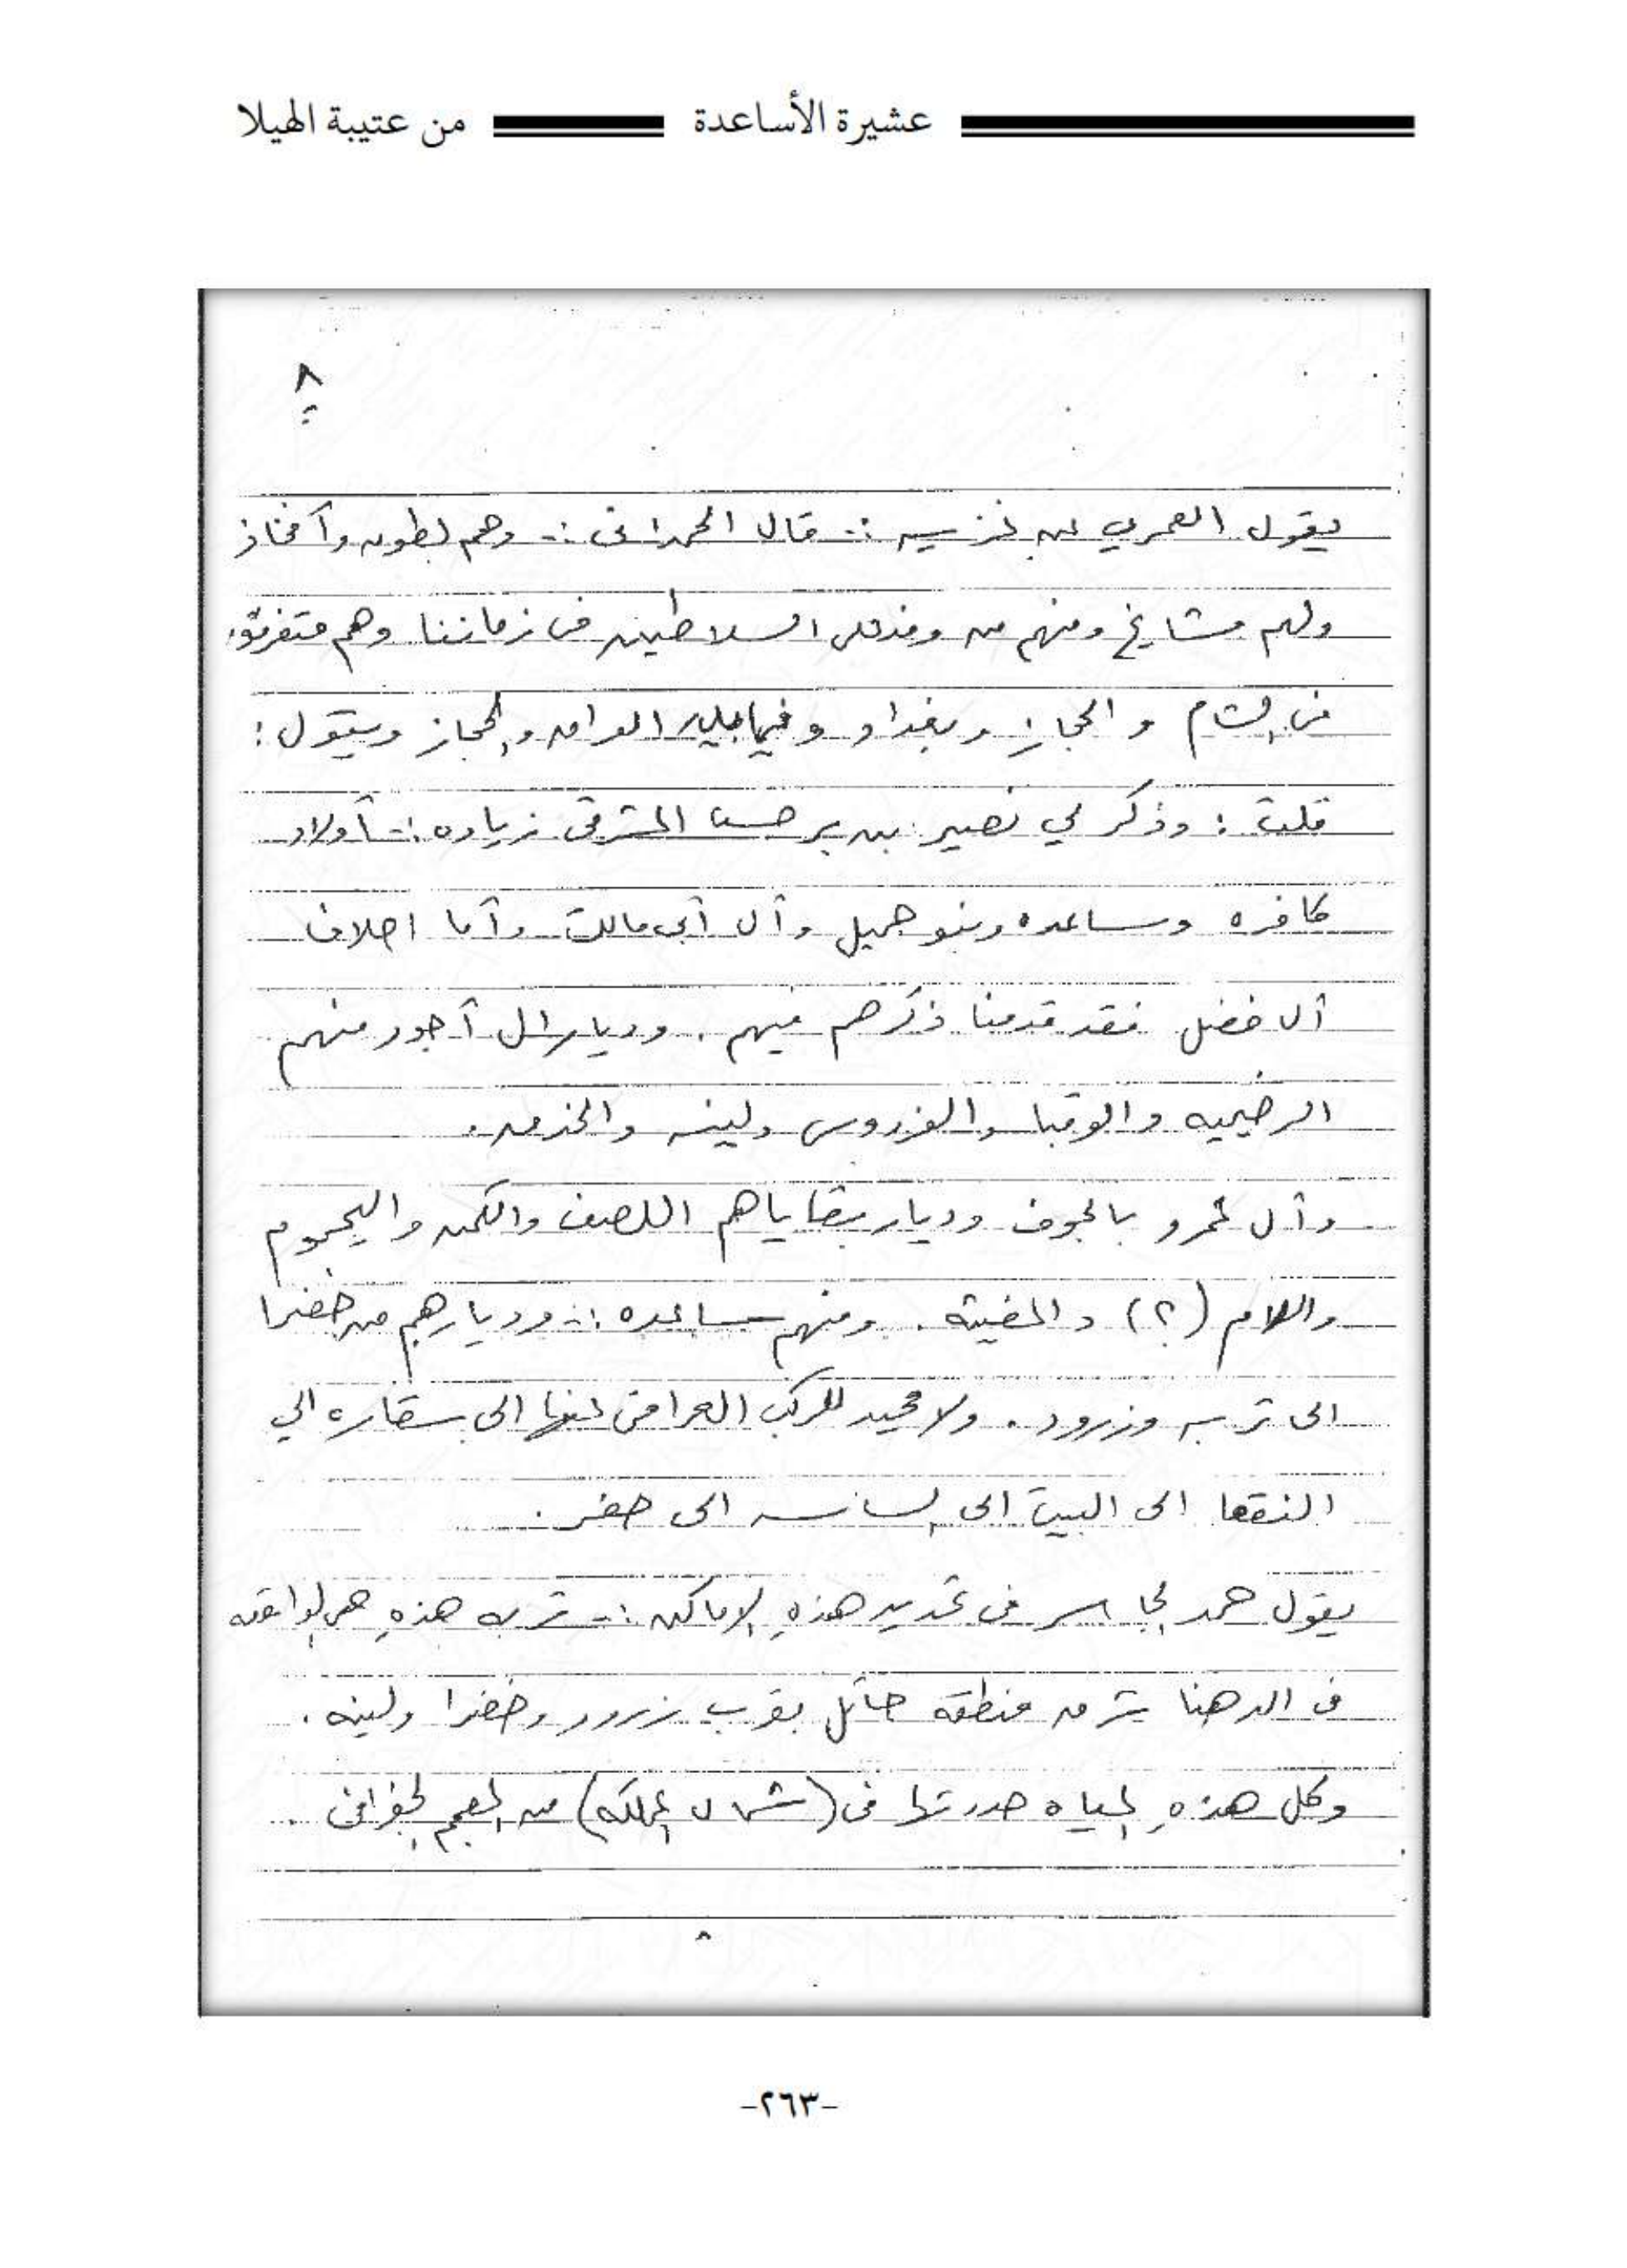 عشيرة الأساعدة من عتيبة الهيلا
٨
يقول العمري عن غزيه :- قال الحمداني :- وهم بطون وأفخاذ
ولهم مشايخ ومنهم من وفد على السلاطين في زماننا وهم متفرقون
في الشام والحجاز وبغداد وفيما بين العراق والحجاز ويقول :
قلت : وذكر لي نصير بن برجس المشرقي زياده :- أولاد
كافره وساعده وبنو جميل وآل أبي مالك وأما احلاف
آل فضل فقد قدمنا ذكرهم فيهم . وديار آل أجود منهم
الرخيميه والوقبا والفردوس ولينه والحذق .
وآل عمرو بالجوف وديار بقاياهم اللصف والكمن واليحموم
واللام (؟) والمغيثة . ومنهم ساعده :- وديارهم من خضرا
الى تربه وزرود . ولا محيد للركب العراقي عنها الى سقاره الي
النقعا الى البيت الى الساسه الى حفر .
يقول حمد الجاسر في تحديد هذه الاماكن :- تربه هذه هي الواقعه
في الدهنا شرق منطقة حائل بقرب زرود وخضرا ولينه .
وكل هذه المياه حددتها في (شمال المملكه) من المعجم الجغرافي .
٨
-٢٦٣-